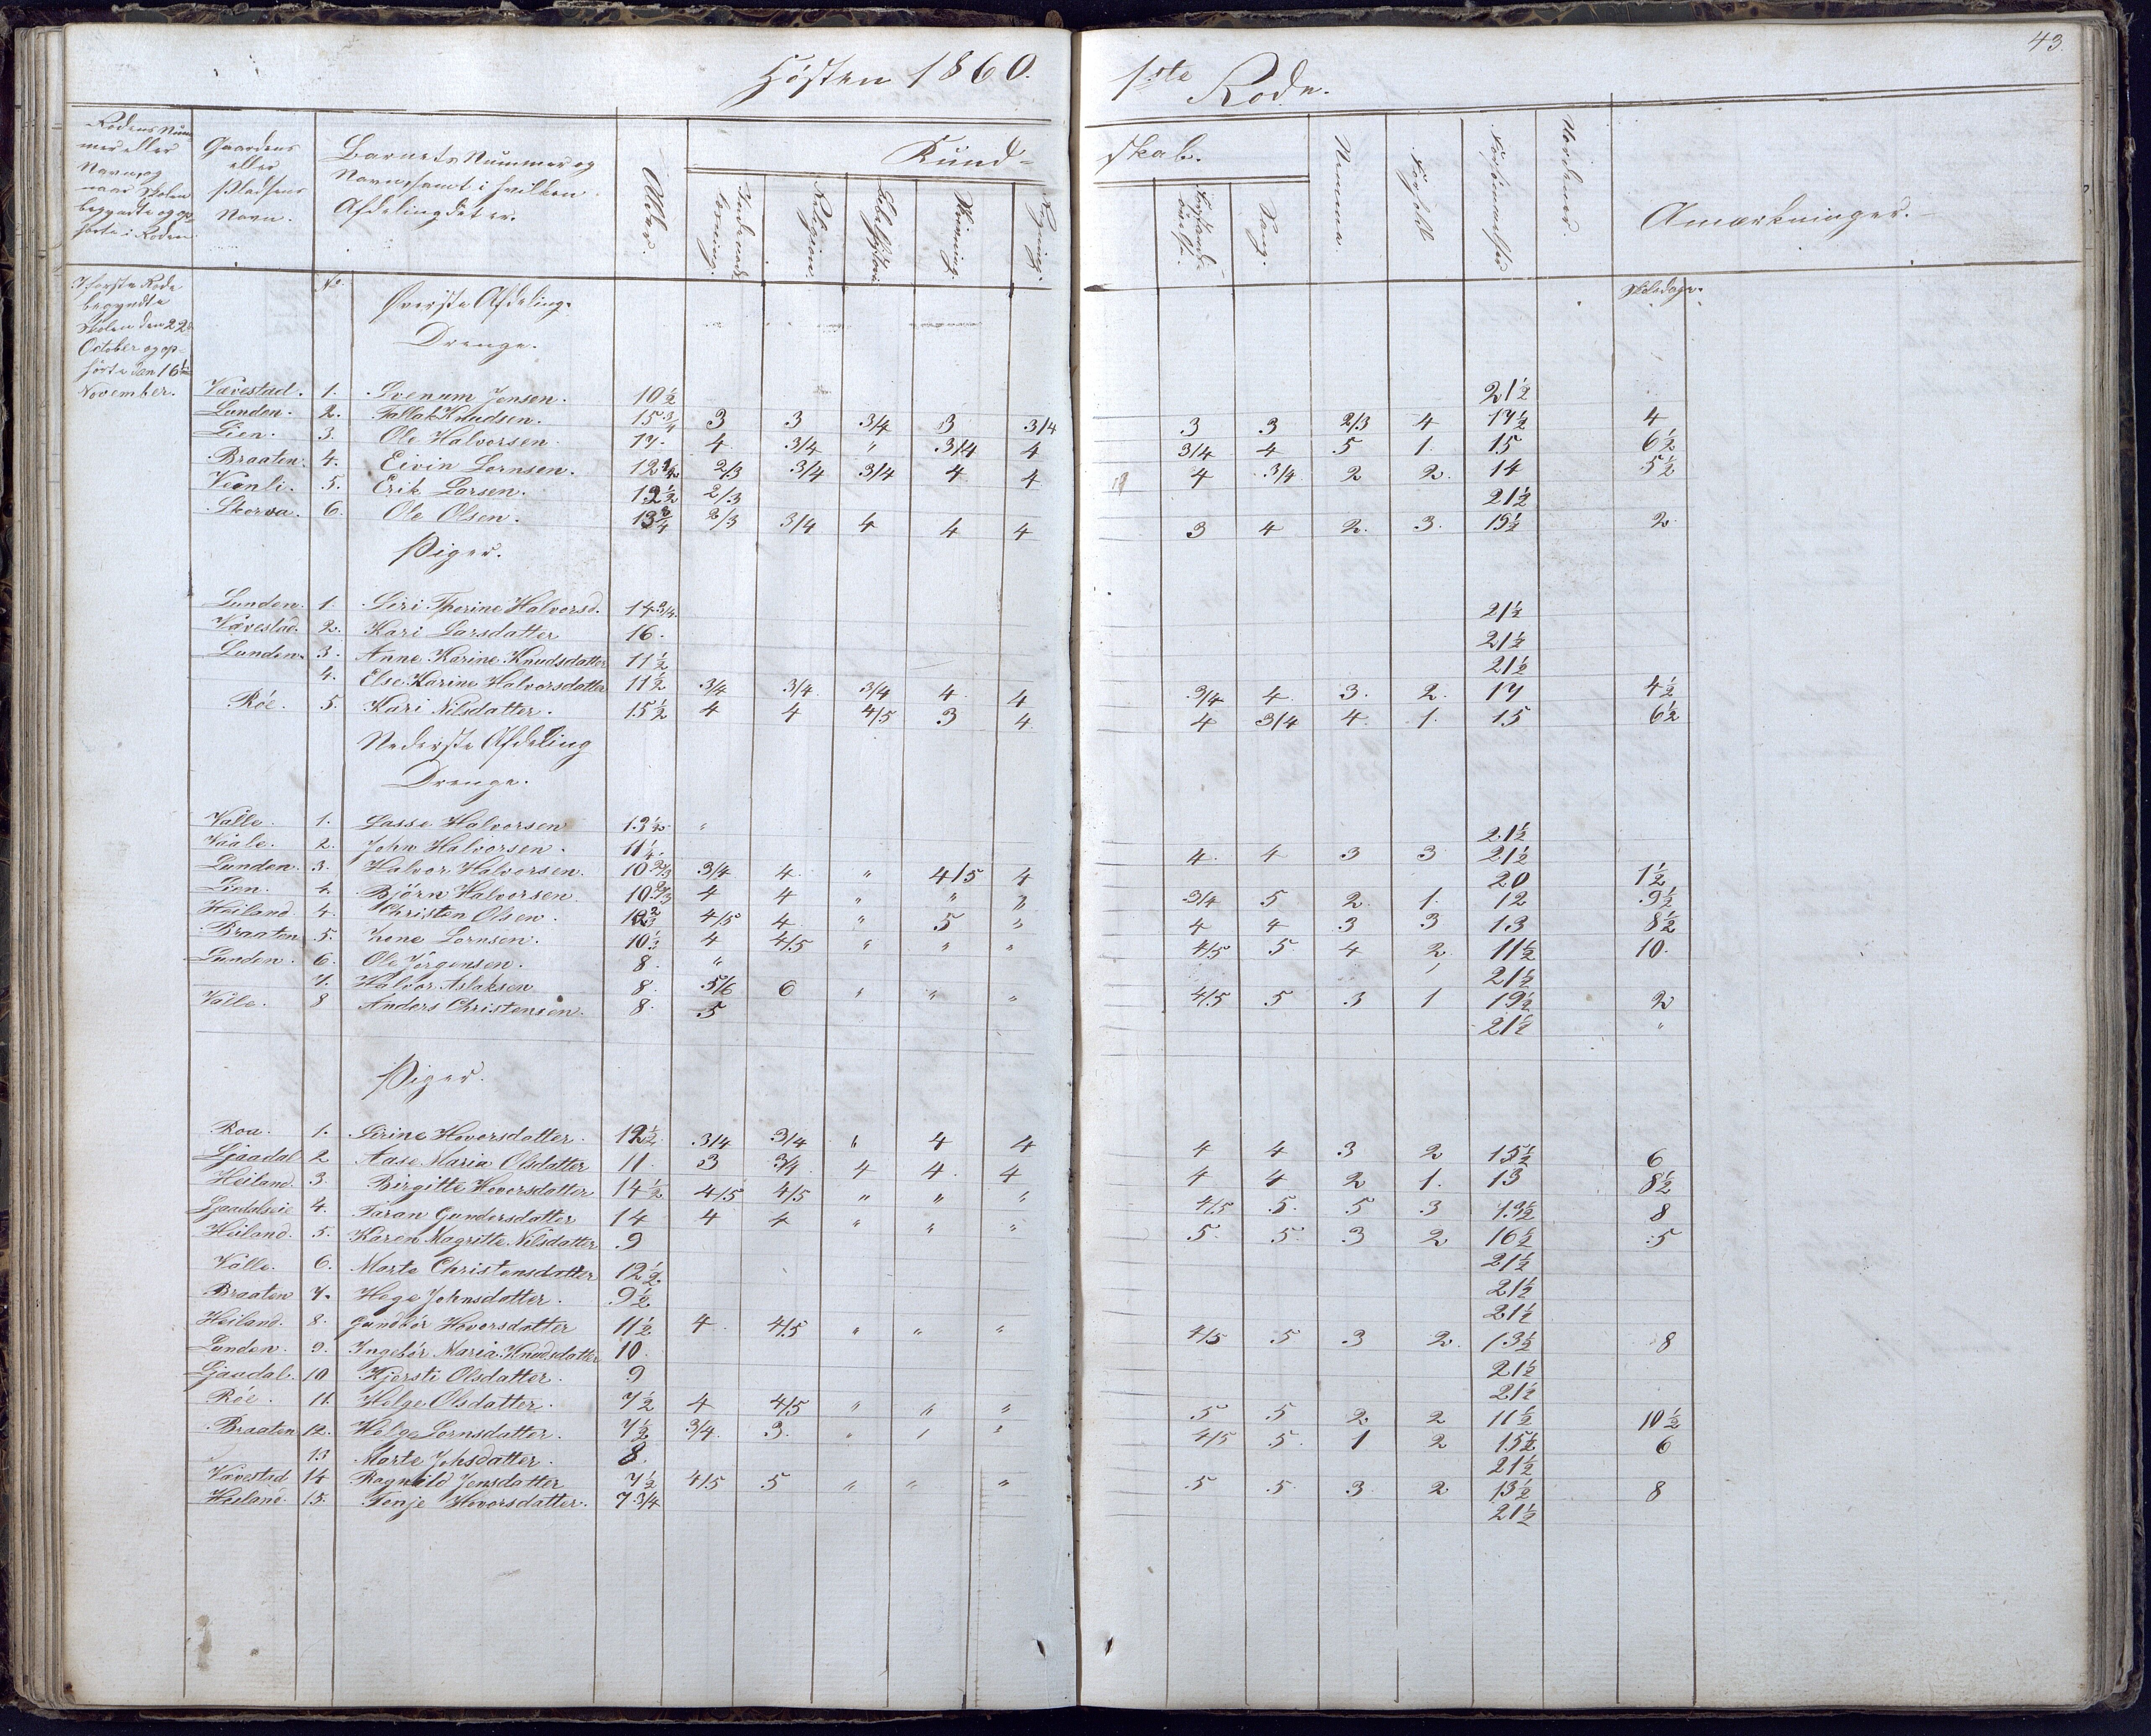 Høsten 1860.
1ste Rode.
43.
Rodens Num-
mer eller
Navn, og
naar Skolen
begyndte og op-
hørte i Roden.
Gaardens
eller
Pladsens
Navn.
Barnets Nummer og
Navn, samt i hvilken
Afdeling det er.
Alder.
Kund-
skab.
Indenads-
læsning.
Religion.
Bibelhistorie
Skrivning.
Regning.
Sang.
Nemme.
Forhold.
Forsømmelser
Anmærkninger.
I første Rode
begyndte
Skolen den 22de
October og op-
hørte den 16de
November.
No.
Øverste Afdeling.
Skoledage.
Drenge.
Værestad. 1. Svenum Jensen. 10½ 21½
Lunden. 2. Tallak Knudsen. 15¾ 3 3 3/4 3 3/4 3 3 2/3 4 17½ 4
Lien. 3. Ole Halvorsen. 17. 4 3/4 " 3/4 4 3/4 4 5 1. 15 6½
Braaten. 4. Eivin Lornsen. 12½ 2/3 3/4 3/4 4 4 4 3/4 2 2. 14 5½
Veanli. 5. Erik Larsen. 12½ 2/3 21½
Skorva. 6. Ole Olsen. 13¾ 2/3 3/4 4 4 4 3 4 2. 3. 19½ 2.
Piger.
Lunden. 1. Siri Therine Halvorsd. 14 3/4. 21½
Værestad. 2. Kari Larsdatter 16. 21½
Lunden. 3. Anne Karine Knudsdatter 11½ 21½
4. Else Karine Halvorsdatter 11½ 3/4 3/4 3/4 4 4 3/4 4 3. 2. 17 4½
Röe. 5. Kari Nilsdatter. 15½ 4 4 4/5 3 4 4 3/4 4. 1. 15 6½
Nederste Afdeling
Drenge.
Valle. 1. Lasse Halvorsen 13½ " 21½
Vaale. 2. John Halvorsen. 11¼ 4. 4 3 3 21½
Lunden. 3. Halvor Halvorsen. 10 2/3 3/4 4. " 4/5 4 20 1½
Lien. 4. Björn Halvorsen. 10 2/3 4 4 " " " 3/4 5 2. 1. 12 9½
Heiland. 4. Christen Olsen. 4/5 4 " 5 " 4 4 3 3 13 8½
Braaten 5. Lornsen. 10½ 4 4/5 " " " 4/5 5 4 2 11½ 10.
Lunden. 6. Ole Jörgensen. 8. " 21½
7. Halvor Aslaksen 8. 5/6 6 " " " 4/5 5 3 1 19½ 2
Valle. 8 Anders Christensen. 8. 5 21½ "
Piger.
Roa. 1. Sirine Hovorsdatter. 12½ 3/4 3/4 " 4 4 4 4 3 2 15½ 6
Ljaadal 2 Aase Maria Olsdatter 11. 3 3/4 4 4. 4 4 4 2 1. 13 8½
Heiland 3. Birgitte Hovorsdatter 14½ 4/5 4/5 " " " 4/5 5. 5 3 13½ 8
Ljaadalseie 4. Taran Gundersdatter 14 4 4 " " " 5. 5. 3 2 16½ 5
Heiland. 5. Karen Magritte Nilsdatter 9 21½
Valle. 6. Marte Christensdatter 12½ 21½
Braaten 7. Hege Johnsdatter. 9½ 21½
Heiland. 8. Gundbör Hovorsdatter 11½ 4. 4/5 " " " 4/5 5 3 2. 13½ 8
Lunden. 9. Ingebör Maria Knudsdatter 10. 21½
Ljaadal. 10 Kjersti Olsdatter. 9 21½
Röe. 11. Helge Olsdatter. 7½ 4 4/5 " " " 5 5 2 2 11½ 10½
Braaten 12. Helge Lornsdatter. 7½ 3/4. 3. " " " 4/5 5. 1 2 15½ 6
13 Marte Johsdatter. 8. 21½
Værestad 14 Ragnild Jensdatter 7½ 4/5 5 " " " 5 5. 3. 2 13½ 8
Heiland. 15. Tonje Hovorsdatter. 7 3/4 21½